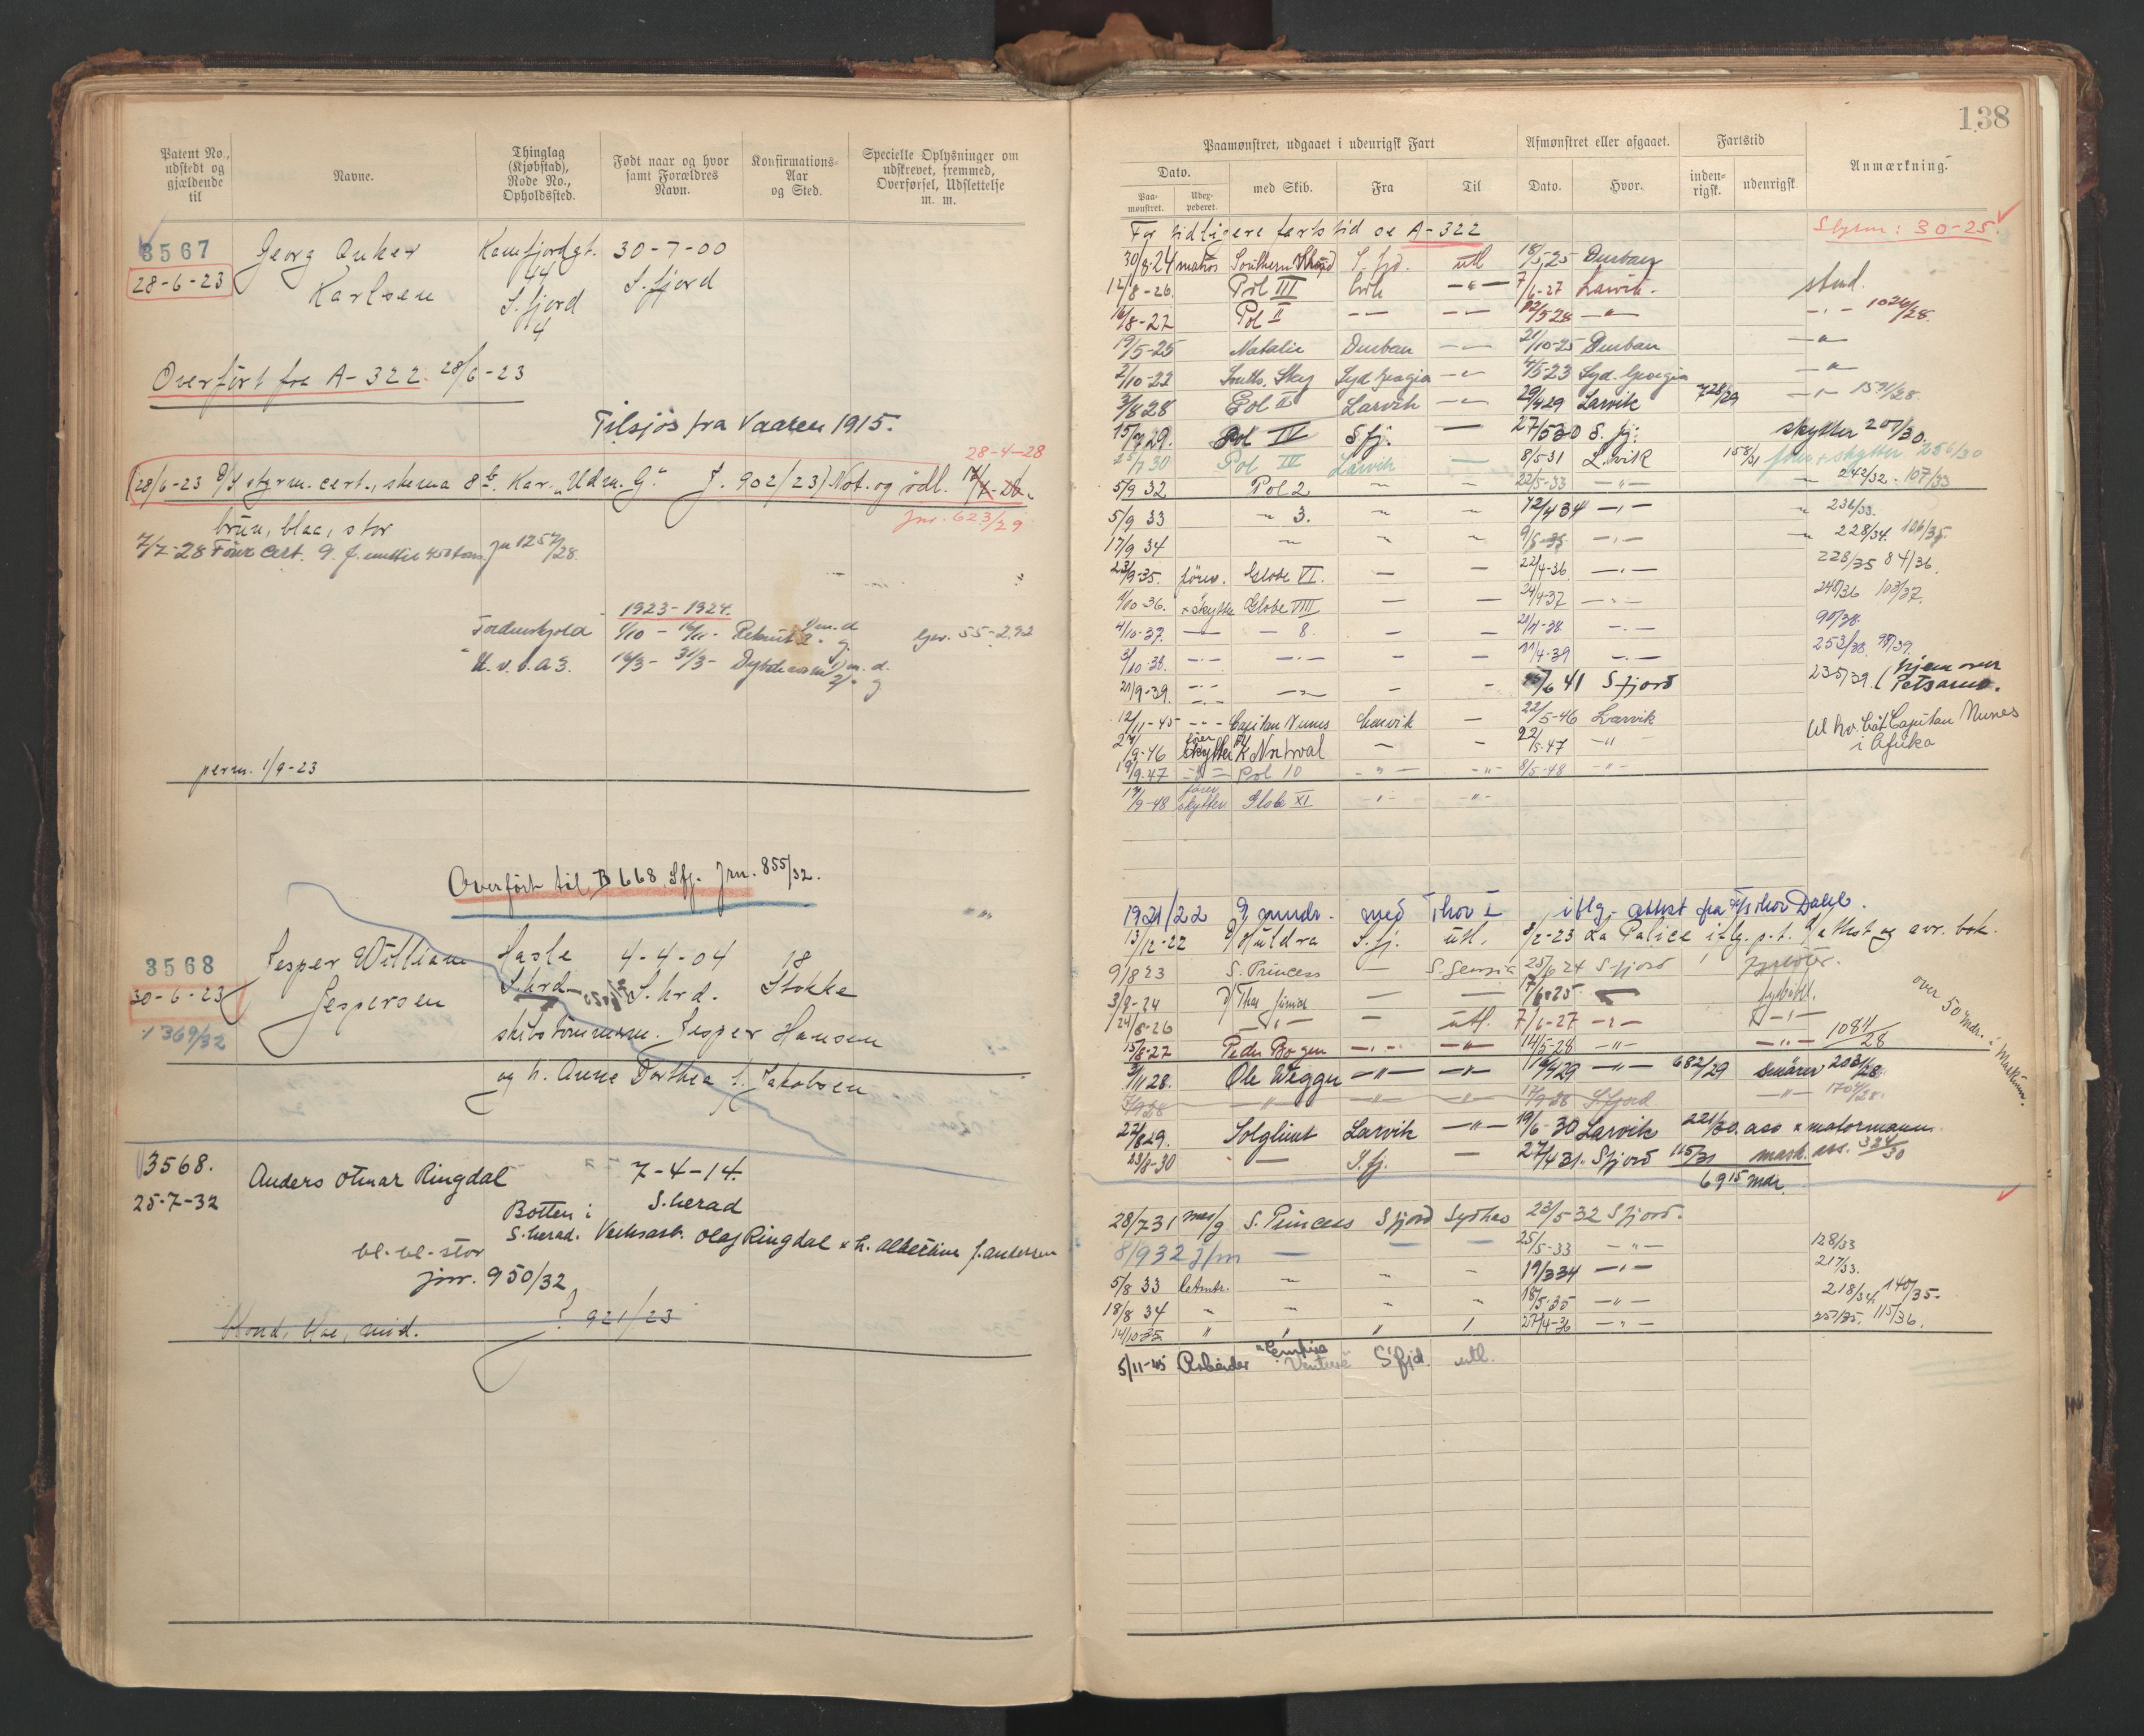 Patent No., udstedt og gjældende til
Navne.
Thinglag (Kjøbstad), Rode No., Opholdssted.
Født naar og hvor samt Forældres Navn.
Konfirmations-Aar og Sted.
Specielle Oplysninger om udskrevet, fremmed, Overførsel, Udslettelse m. m.
3567
28-6-23
Georg Anker
Karlsen
Kamfjordgt.
44
S. fjord
4
30-7-00
S. fjord
Overført fra A-322. 28/6-23
Tilsjøs fra Vaaren 1915.
28-4-28
28/6-23 styrm. cert., skema 8 Kar. "Udm. G" J. 902/23) Not. og ødl.
Jnr. 623/29
brun, blaa, stor
7/7-28 Fører cert. 450 tons Jn 1257/28
1923-1924.
Tordenskjold 1/10 - 16/11- Rekrut
U.v.b. A3. 16/3 - 31/3-
perm. 1/9-23
Overført til B 668 Sfj. Jrn. 855/32.
3568
30-6-23
1369/32
Jesper William
Jespersen
Hasle
S.hrd.
4-4-04
S. hrd.
18
Stokke
skibstømmerm. Jesper Hansen
og h. Anne Dorthea f. Jakobsen
3568.
25-7-32
Anders Otmar Ringdal
7-4-14.
S.herad
Botten i
S.herad. Verksarb. Olaf Ringdal & h. Albertine f. Andersen
bl.-bl.-stor
jnr. 950/32
blond, blaa, mid. 921/23
138
Paamønstret, udgaaet i udenrigsk Fart
Afmønstret eller afgaaet.
Fartstid
Anmærkning.
Dato.
Paa-mønstret.
Udex-pederet.
med Skib.
Fra
Til
Dato.
Hvor.
inden-rigsk.
udenrigsk.
For tidligere fartstid se A-322
Styrm: 30-25.
30/8-24 matros Southern S. fjd. utl 18/5-25 Durban
12/8-26. Pol III Lvik -"- 7/6-27 Larvik. stud.
16/8-27 Pol II - - 12/5 28 -"- -"- 1026/28.
19/5-25 Natalie Durban -"- 21/10-25 Durban -"-
2/10-22 South. Sky Syd Georgia -"- 4/5-23 Syd. Georgia -"-
3/8 28 Pol II Larvik -"- 29/4 29 Larvik 728/29 -"- 1531/28.
15/8 29. Pol IV S fj. - 27/5 30 S. fj. skytter 207/30.
Pol IV Larvik - 8/5-31 L.vik 158/31 fører & skytter 256/30
5/9 32 Pol 2 22/5-33 -"- 242/32. 107/33
5/9 33 " 3. 12/4 34 -"- 236/33.
17/9 34 " 9/5-35 -"- 228/34. 106/35
23/9-35. fører. Globe VI. - - 22/4-36 -"- 228/35 84/36.
1/10 36. & skytter Globe VIII - - 24/4-37 -"- 248/36 103/37.
4/10-37. - 8. - - 21/4-38. -"- 90/38.
3/10-38. -"- -"- - - 11/4-39 -"- 253/38. 98/39.
21/9-39. -"- - - 6 41 S fjord 235/39. (hjem over Petsamo.
12/11-45 -"- Capitan Nunes Larvik - 22/5-46 Larvik til hv. båt Capitan Nunes i Afrika
27/9-46 fører skytter K Norhval - - 22/5-47 -"-
19/9-47 -"- Pol 10 -"- -"- 8/5-48 -"-
17/9-48 fører skytter Globe XI -"- -"-
1921/22 9 mndr. med Thor I iflg. attest fra Thor Dahl.
13/12-22 Huldra S. fj. utl. 8/2-23 La Palice iflg. attest og avr. bok.
9/8 23 S. Princess - S. Georgia 25/6 24 S fjord fyrbøter.
3/9-24 Thor - - 7/6-25 fyrbøter.
24/8-26 -"- - utl. 7/6-27 -"- -"-
over 50 mdr. i Maskinen.
15/8-27 Peder Bogen -"- -"- 14/5-28 -"- -"- 1084/28
3/11 28. Ole Wegger -"- -"- 16/4 29 -"- 682/29 smører 2031/28
-"- -"- -"- 17/9-28 S.fjord -"- 1704/28.
22/8 29. Solglimt Larvik -"- 19/6-30 Larvik 221/30. ass & motormann
23/8-30 - S. fj. - 27/4 31. S fjord 115/31 mask. ass. 324/30
69 15 mdr.
28/7 31 mes/g S. Princess S fjord Sydhav 23/5-32 S fjord.
8/9 32 j/m - - - 25/5-33 -"- 128/33
5/8 33 letmtr. " " " 19/3 34 -"- 217/33.
18/8 34 " " " " 18/5-35 -"- 218/34. 140/35.
14/10-35 " " " " 27/4-36 -"- 257/35. 115/36.
5/11-45 Arbeider "Empire Venture" S.fjd. utl.